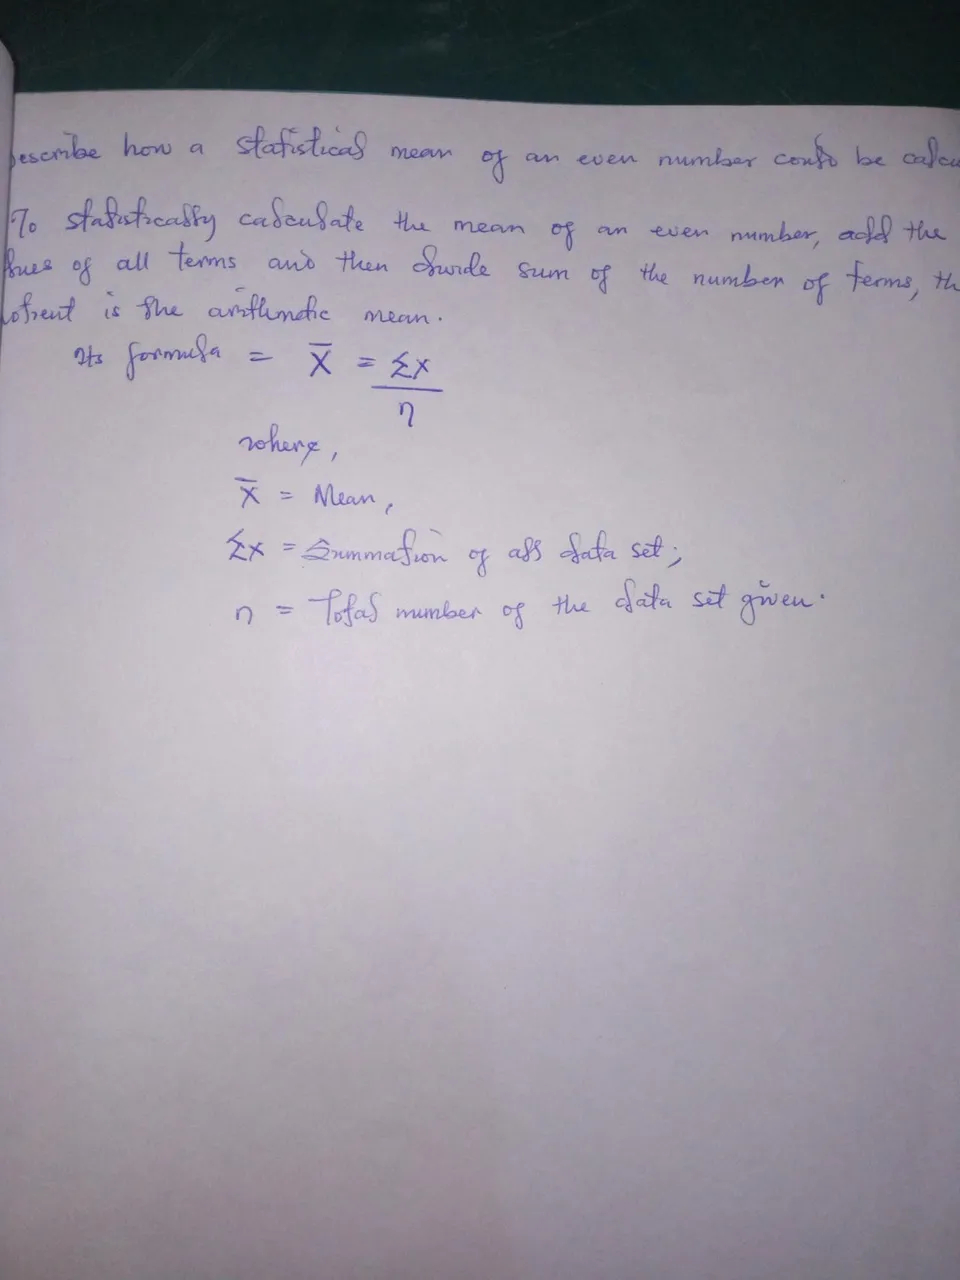 Describe how a statistical mean of an even number could be calcu
To statistically calculate the mean of an even number, add the
lues of all terms and then divide sum of the number of terms, th
otient is the arithmetic mean.
Its formula = X̄ = Σx
n
where,
X̄ = Mean,
Σx = Summation of all data set;
n = Total number of the data set given.